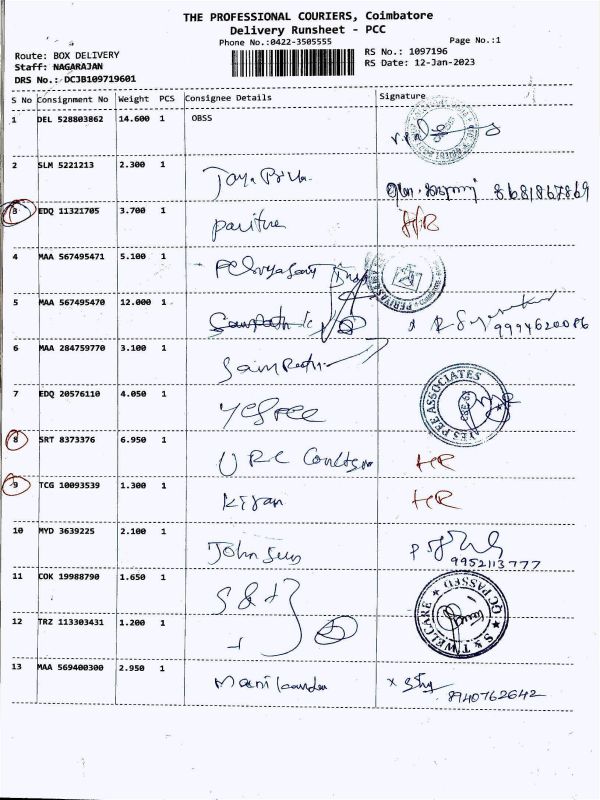 THE PROFESSIONAL COURIERS, Coimbatore
Delivery Runsheet - PCC
Phone No.:0422-3505555
Page No.:1
Route: BOX DELIVERY
Staff: NAGARAJAN
DRS No.: DCJB109719601
RS No.: 1097196
RS Date: 12-Jan-2023
S No Consignment No Weight PCS Consignee Details Signature
1 DEL 528803862 14.600 1 OBSS
2 SLM 5221213 2.300 1 Jaya Priya 8681867869
3 EDQ 11321705 3.700 1
4 MAA 567495471 5.100 1
5 MAA 567495470 12.000 1 9994620086
6 MAA 284759770 3.100 1
7 EDQ 20576110 4.050 1 YESPEE YES PEE ASSOCIATES
8 SRT 8373376 6.950 1 URC HR
9 TCG 10093539 1.300 1 Kiran HR
10 MYD 3639225 2.100 1 John
9952113777
11 COK 19988790 1.650 1 S & T
12 TRZ 113303431 1.200 1 S & T WELCARE QC PASSED
13 MAA 569400300 2.950 1 Manikandan
8940762642